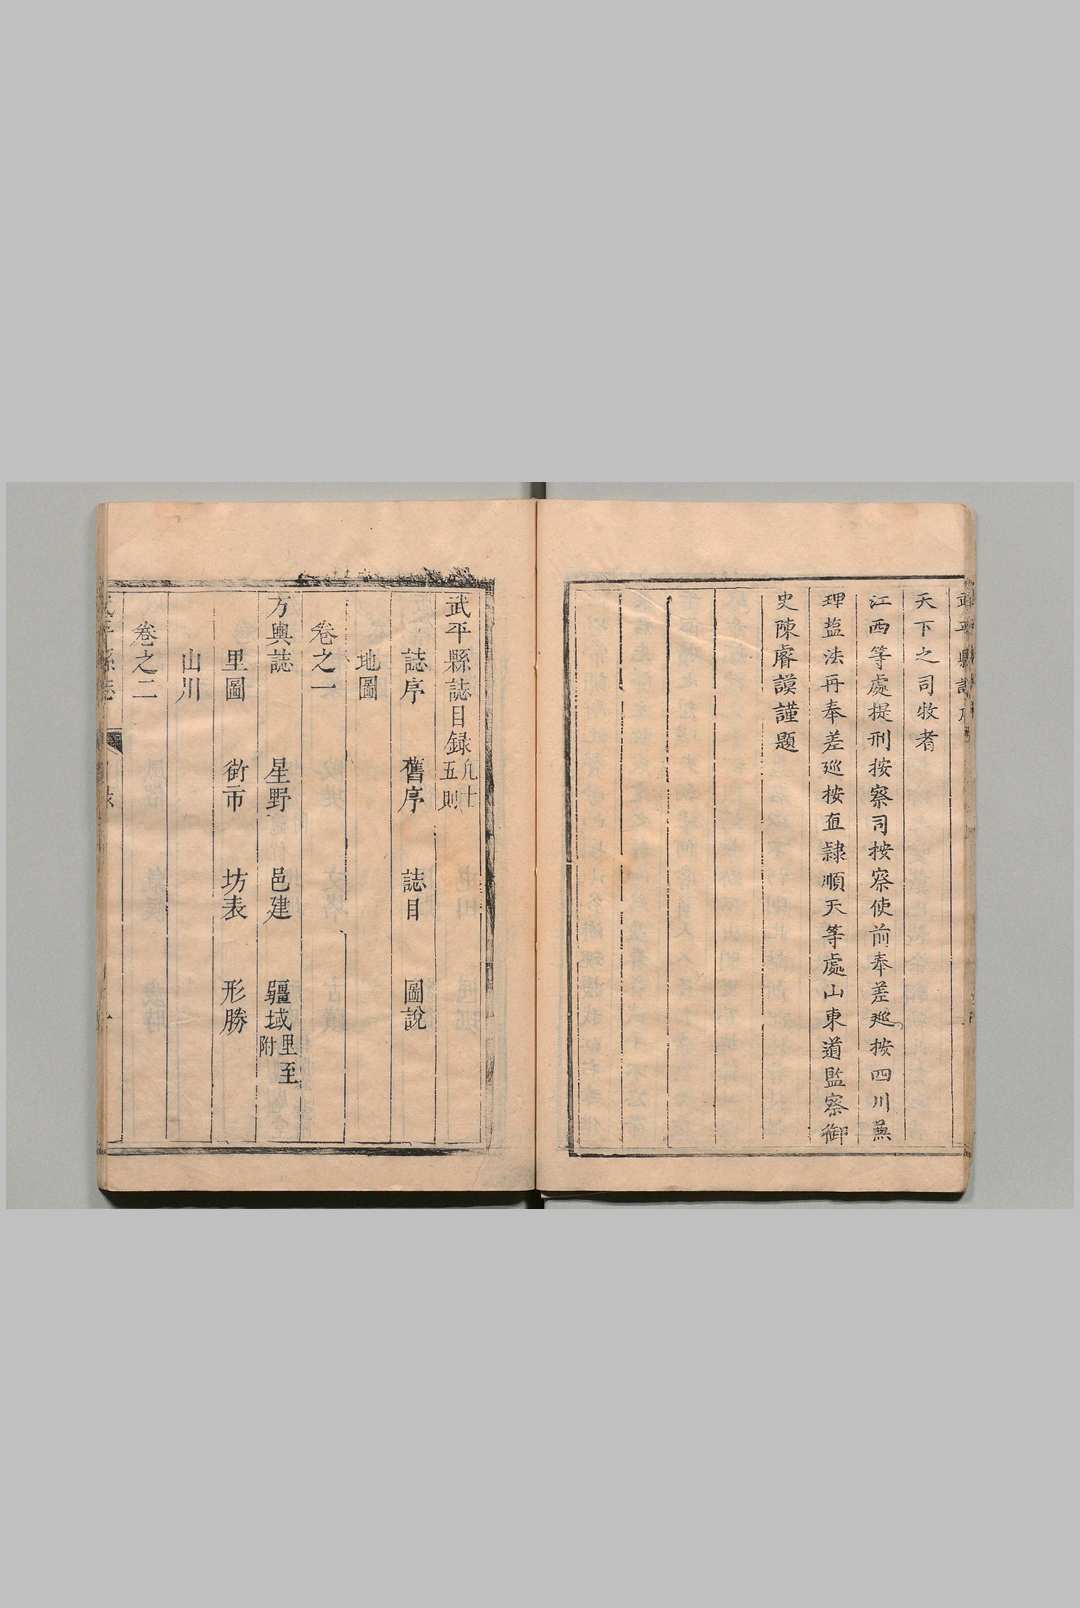 武平縣誌序
天下之司牧者
江西等處提刑按察司按察使前奉差廵按四川兼
理盐法再奉差廵按直隷順天等處山東道監察御
史陳睿謨謹題
武平縣誌目録凡十五則
誌序 舊序 誌目 圖說
地圖
卷之一
方輿誌 星野 邑建 疆域里至附
里圖 街市 坊表 形勝
山川
卷之二
武平縣誌